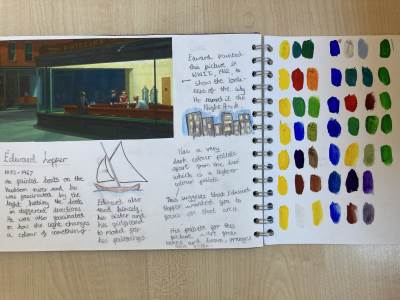 PHILLIES
Edward painted
this picture in
WWII, 1942, to
show the lonli-
ness of the city
He named it the
Night Hawk
Edward hopper
1882-1967
He painted boats on the
Hudson river and he
was fascinated by the
light hitting the boats
in different directions
He was also fascinated
in how the light changes
a colour of something
Edward also
used himself,
his sister and
his girlfriend
to model for
his paintings
Has a very
dark colour pallete
apart from the bar
which is a lighter
colour pallete
This suggests that Edward
Hopper wanted you to
focus on that area.
His pallete for this
picture
and brown, oranges